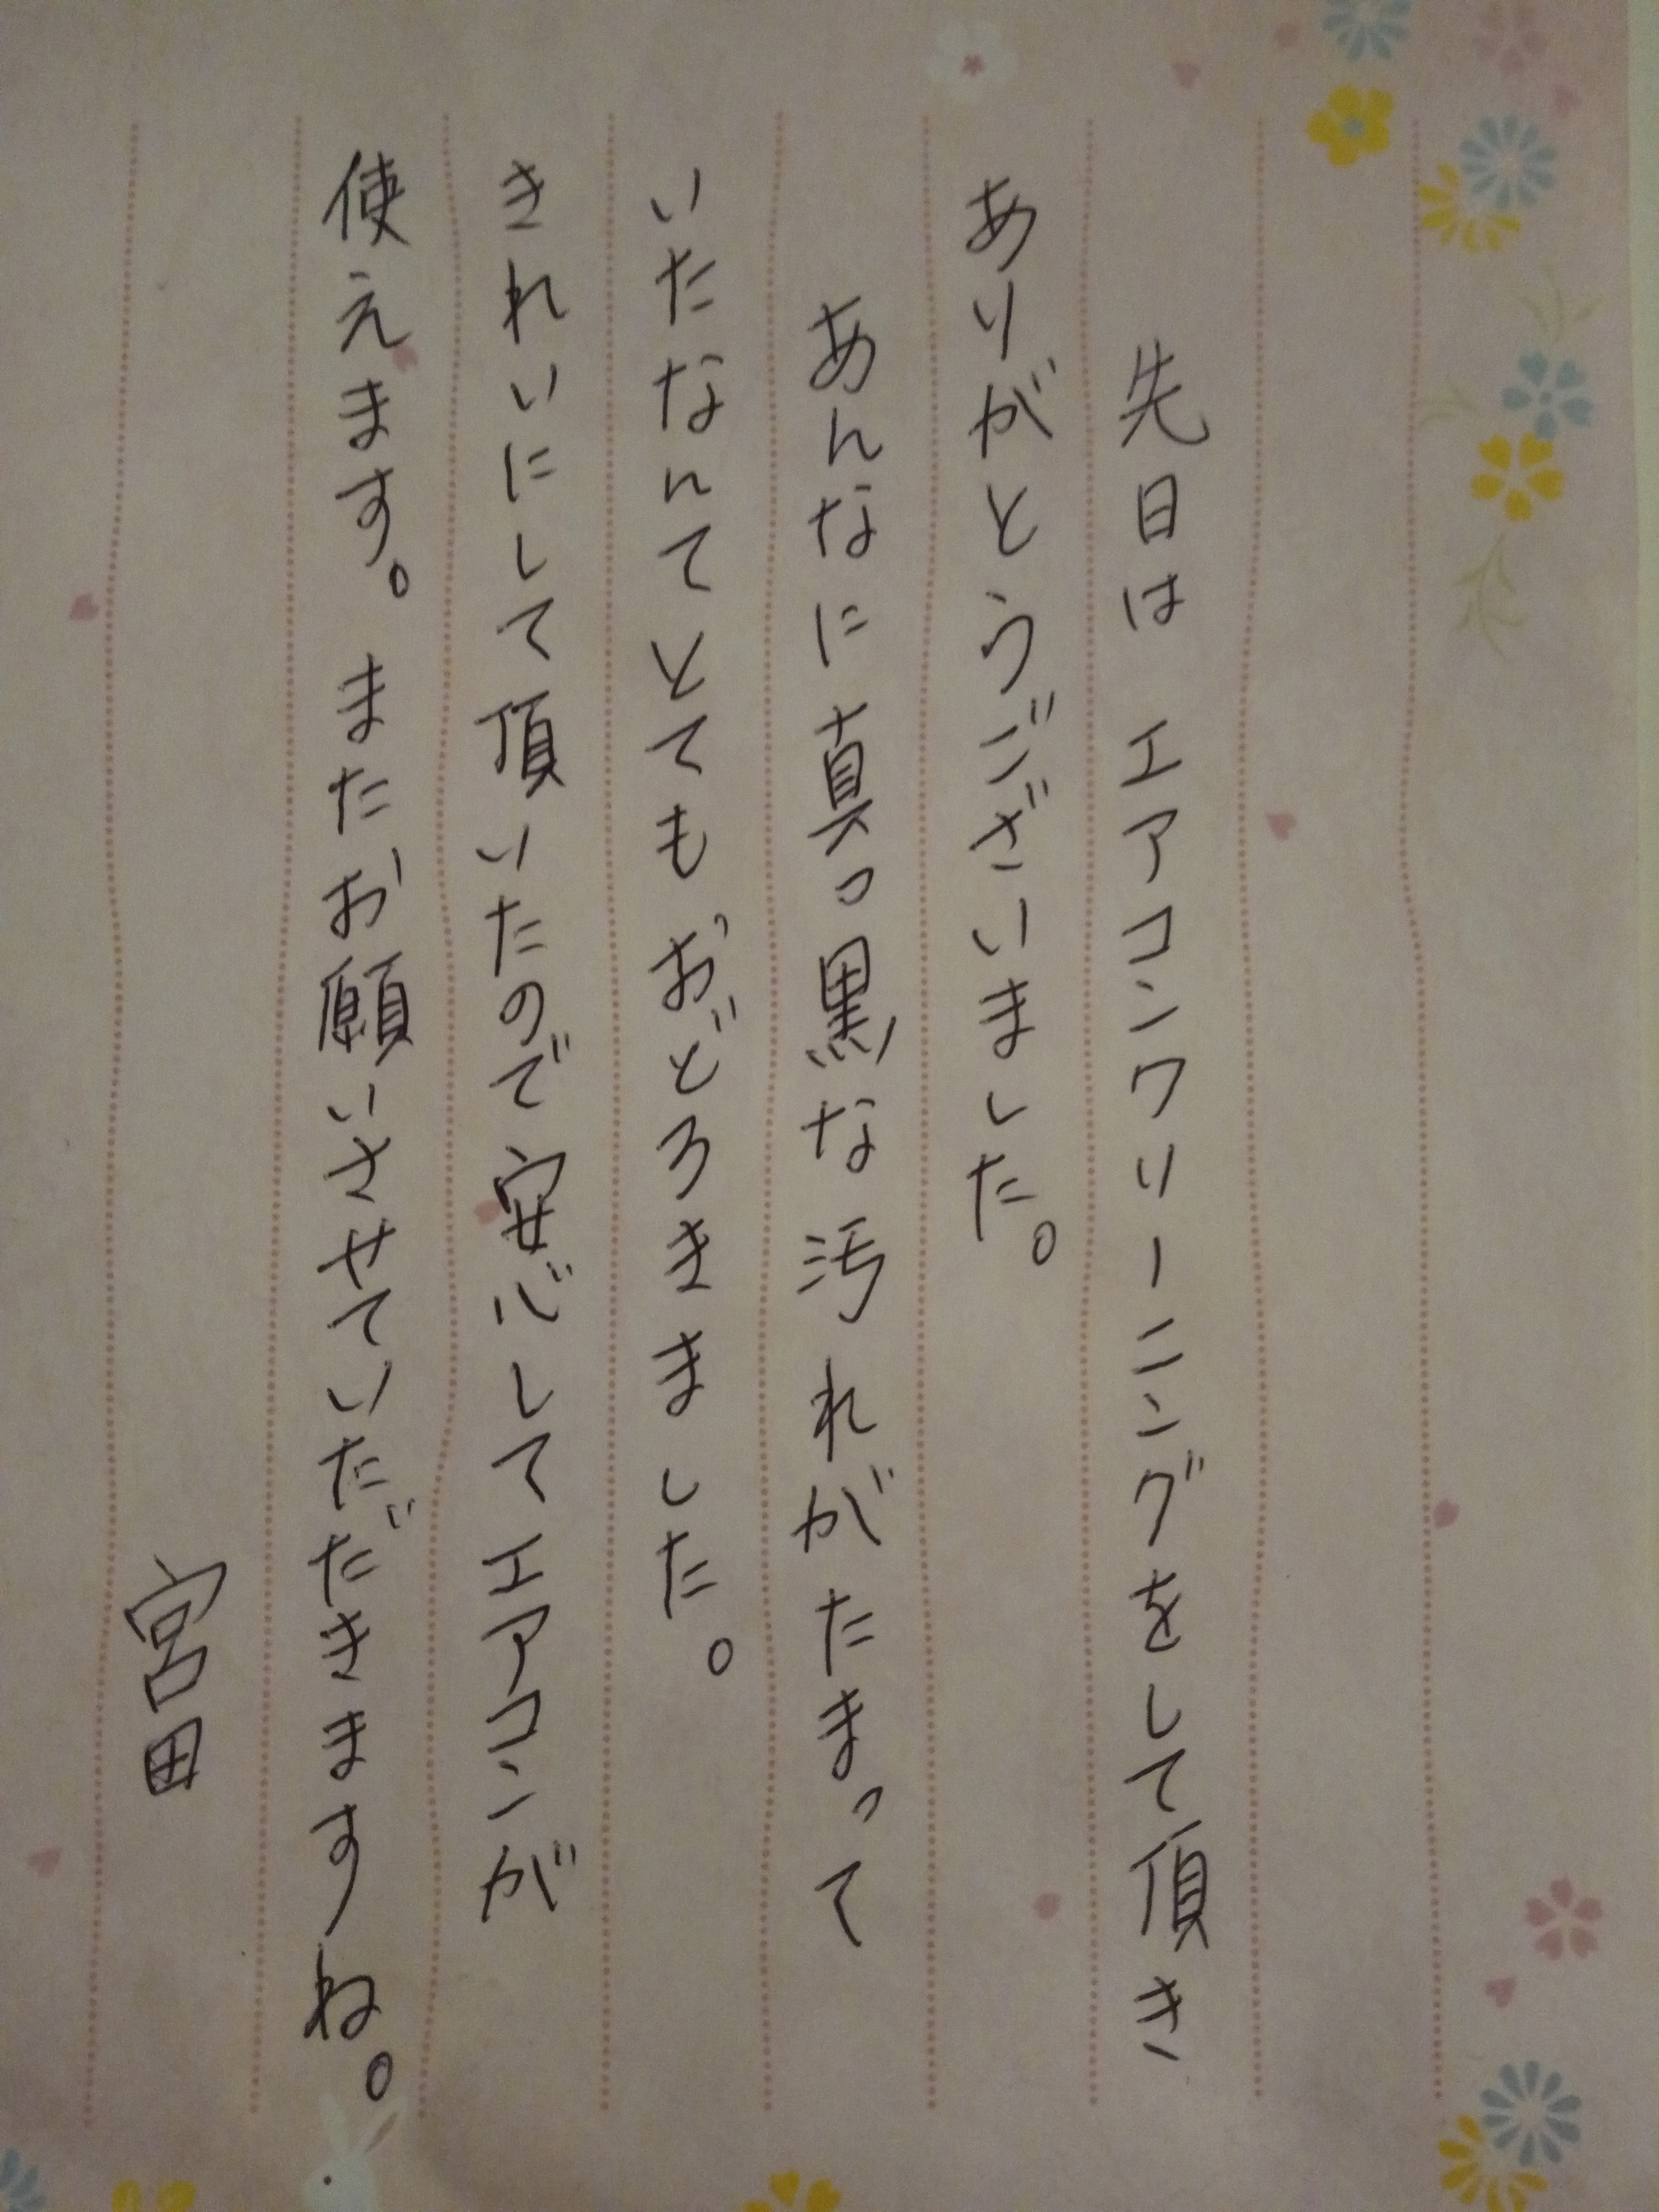 先日は エアコンクリーニングをして頂き
ありがとうございました。
あんなに真っ黒な汚れがたまって
いたなんてとてもおどろきました。
きれいにして頂いたので安心してエアコンが
使えます。またお願いさせていただきますね。
宮田